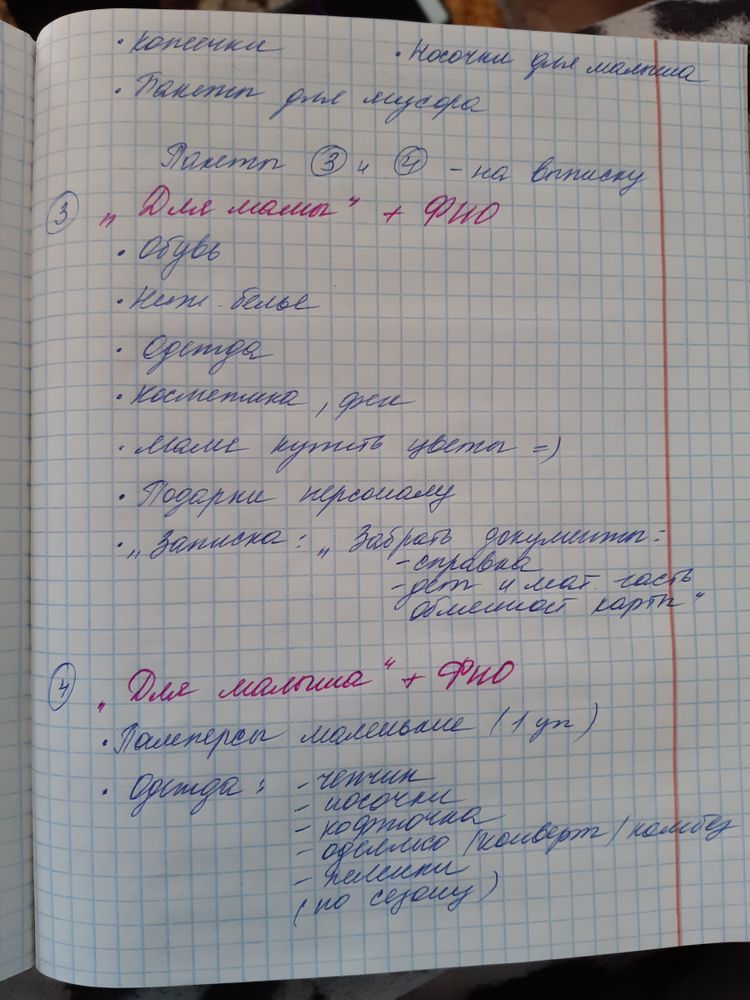 • Копеечки • Носочки для малыша
• Пакеты для мусора
Пакеты ③ и ④ - на выписку
③ „Для мамы“ + ФИО
• Обувь
• Ниж. белье
• Одежда
• Косметика, фен
• Маме купить цветы =)
• Подарки персоналу
• „Записка: „Забрать документы:
- справка
- дет и мат. часть
обменной карты“
④ „Для малыша“ + ФИО
• Памперсы маленькие (1 уп)
• Одежда: - чепчик
- носочки
- кофточка
- одеялко /конверт/ комбез
- пеленки
(по сезону)